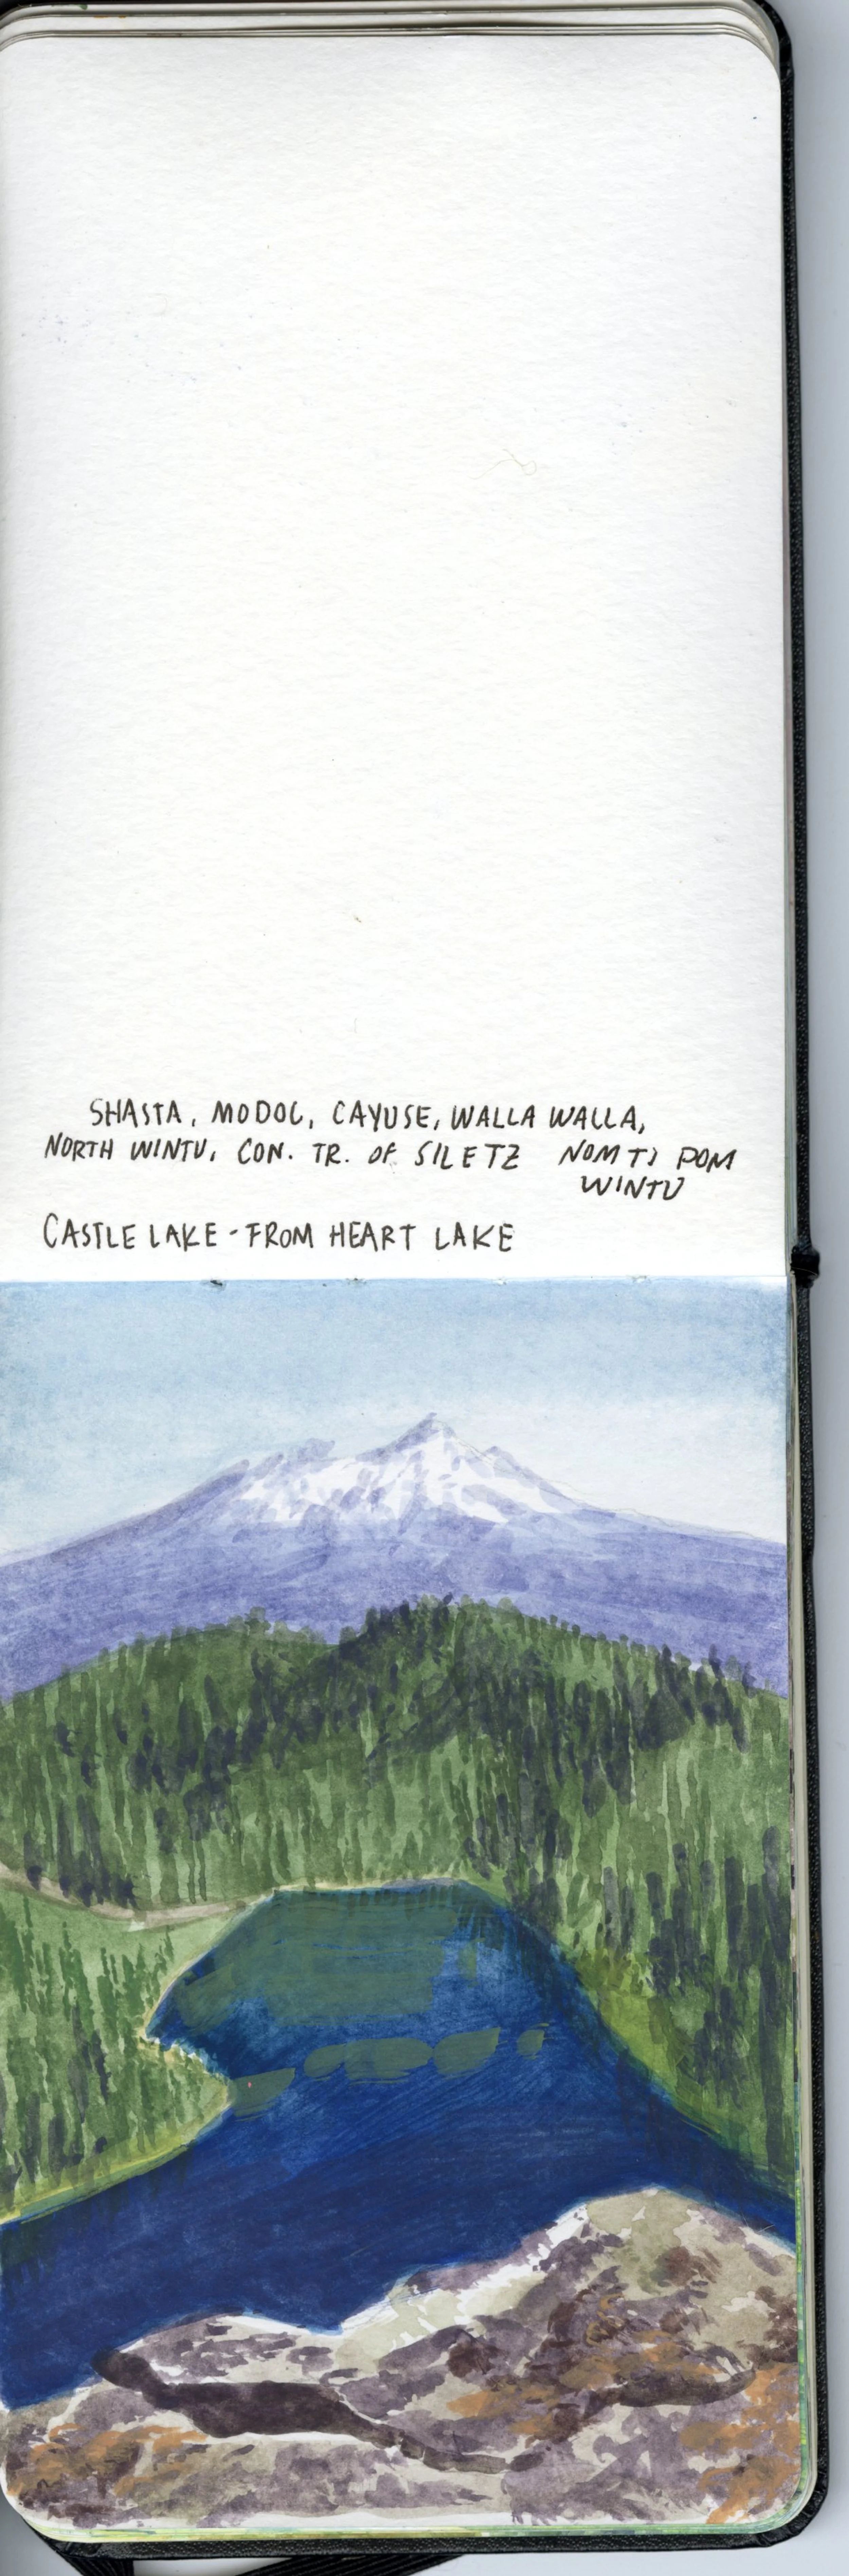 SHASTA, MODOC, CAYUSE, WALLA WALLA,
NORTH WINTU, CON. TR. OF SILETZ NOMTI POM
WINTU
CASTLE LAKE - FROM HEART LAKE